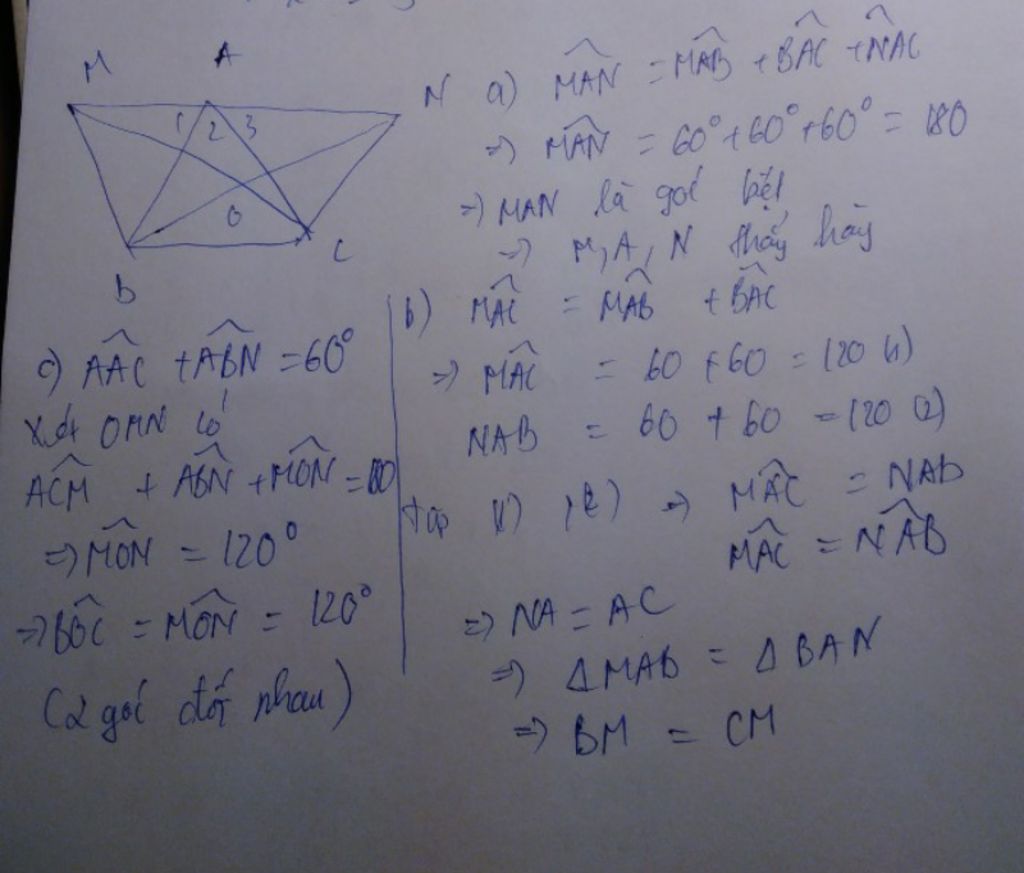 M A N
1 2 3
O
B C
a) M̂AN = M̂AB + B̂AC + N̂AC
=> M̂AN = 60° + 60° + 60° = 180
=> MAN là góc bẹt
=> M, A, N thẳng hàng
b) M̂AC = M̂AB + B̂AC
=> M̂AC = 60 + 60 = 120 (1)
NAB = 60 + 60 = 120 (2)
từ (1), (2) => M̂AC = NAB
M̂AC = N̂AB
=> NA = AC
=> ΔMAB = ΔBAN
=> BM = CM
c) ÂAC + ÂBN = 60°
Xét OMN có
ÂCM + ÂBN + M̂ON = 180
=> M̂ON = 120°
=> B̂OC = M̂ON = 120°
(2 góc đối nhau)